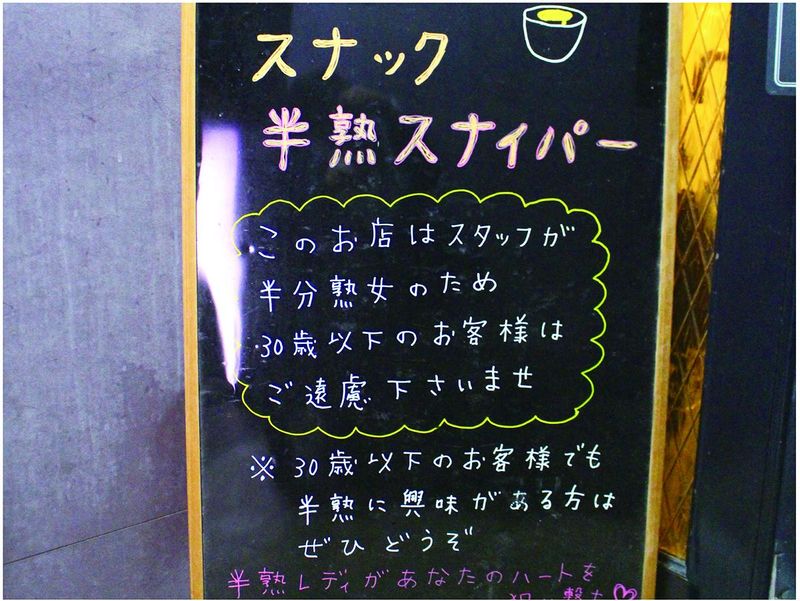 スナック
半熟スナイパー
このお店はスタッフが
半分熟女のため
30歳以下のお客様は
ご遠慮下さいませ
※30歳以下のお客様でも
半熟に興味がある方は
ぜひどうぞ
半熟レディがあなたのハートを